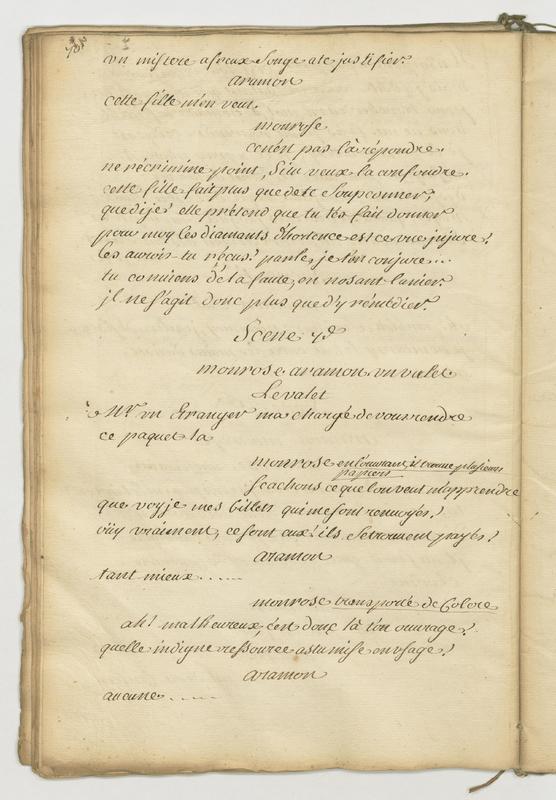 un mistere afreux songe a te justifier.
aramon
cette fille m'en veut.
monrose
ce n'est pas là répondre.
ne récrimine point, si tu veux la confondre.
cette fille fait plus que de te soupconner,
que dije? elle prétend que tu t'es fait donner
pour moy les diamants d'hortence est ce une injure?
les aurois-tu réçus? parle, je t'en conjure...
tu conviens dé la faute, en n'osant la nier.
il ne s'agit donc plus que d'y rémédier.
Scene
monrose. aramon. un valet.
Le valet
Mr. un Etranger m'a chargé de vous rendre
ce paquet la
monrose en l'ouvrant, il trouve plusieurs
papiers
scachons ce que l'on veut m'apprendre
que voy je mes billets qui me sont renvoyés!
oüy vraiment, ce sont eux! ils se trouvent payés!
aramon
tant mieux......
monrose transporté de Colere
ah! malheureux, c'est donc là ton ouvrage!
quelle indigne ressource as tu mise en usage!
aramon
aucune.....